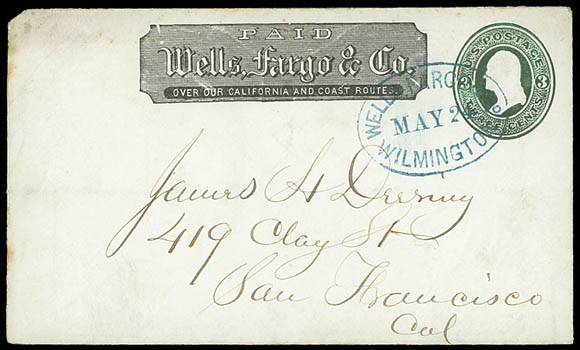 PAID
Wells, Fargo & Co.
OVER OUR CALIFORNIA AND COAST ROUTES.
U.S. POSTAGE
3 3
THREE CENTS
WELLS FARGO
MAY 2
WILMINGTO
James H
419 Clay St
San Francisco
Cal